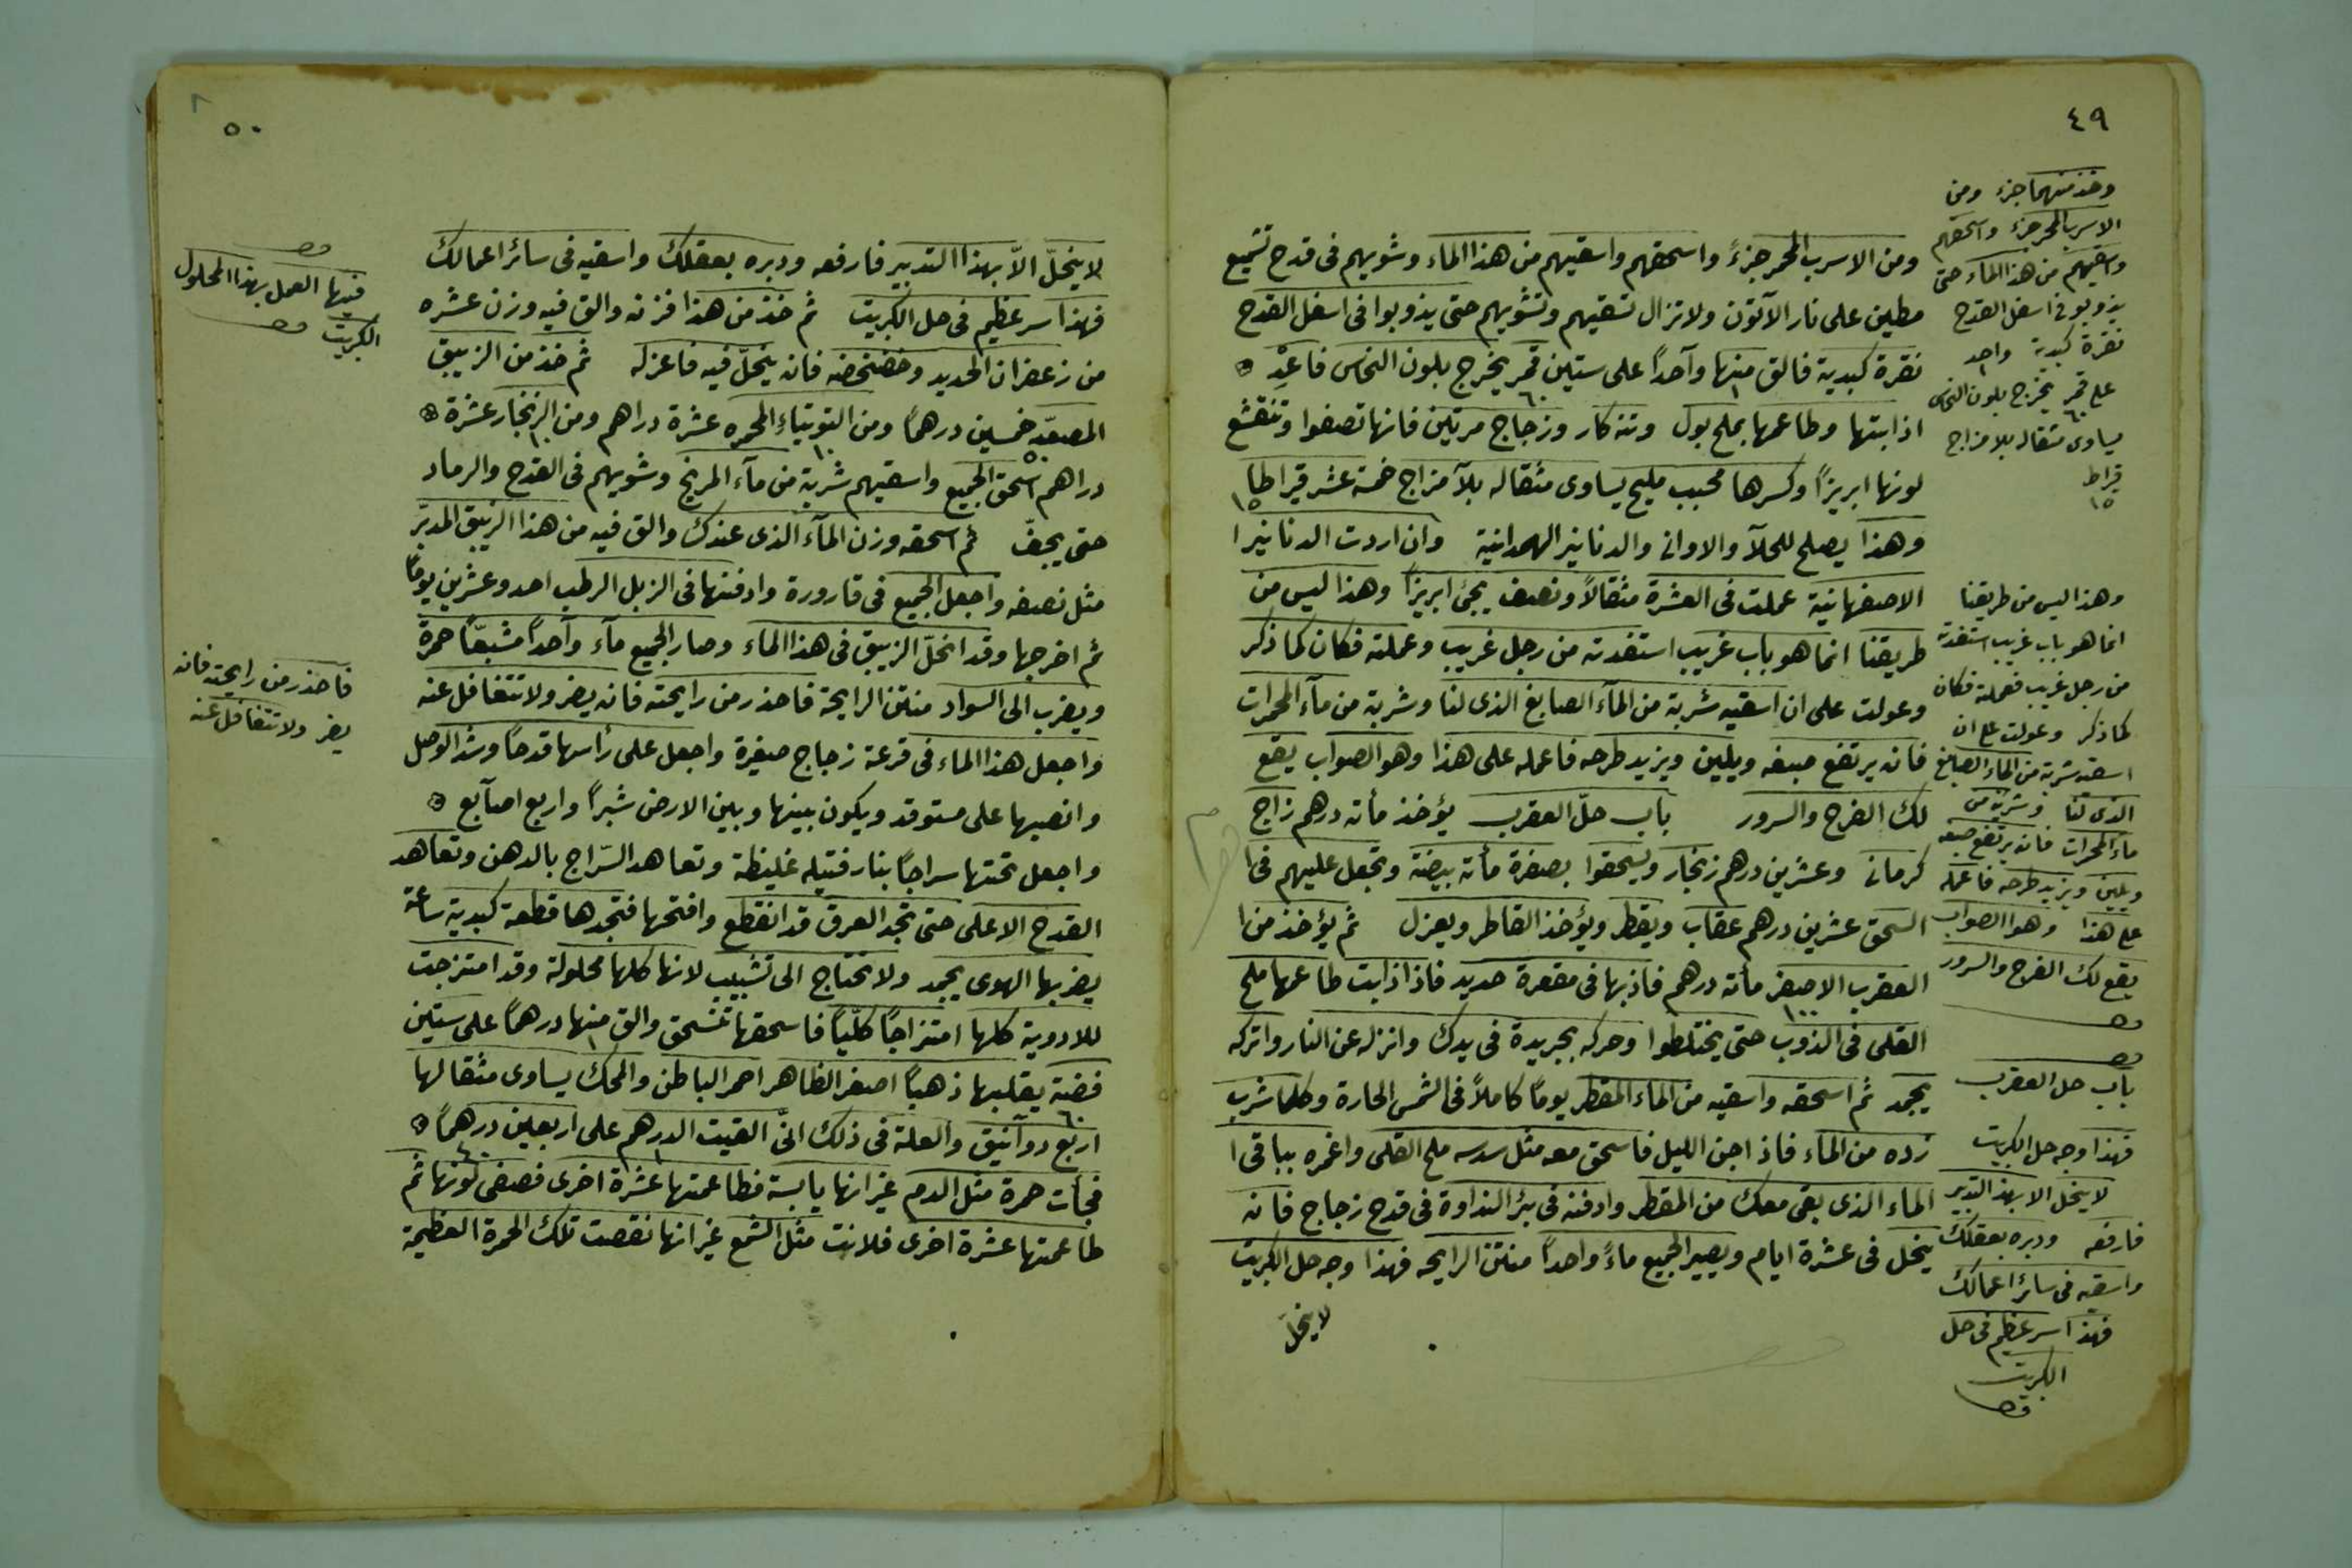 ٤٩
ومن الاسرب المحمر جزءً واسحقهم واسقيهم من هذا الماء وشويهم فى قدح تشميع
مطين على نار الآتون ولا تزال تسقيهم وتشويهم حتى يذوبوا فى اسفل القدح
نقرة كبدية فالق منها وآحداً على ستين قمر يخرج بلون النحاس فاعِدْ
اذابتها وطاعمها بملح بول وتنكار وزجاج مرتين فانها تصفوا وتنقشع
لونها ابريزاً وكسرها محبب مليح يساوى مثقاله بلآ مزاج خمسة عشر قيراطا
وهذا يصلح للحلآ والاوانى والدنانير الهمدانية وان اردت الدنانير ا
الاصفهانية عملت فى العشرة مثقالاً ونصف يجئ ابريزاً وهذا ليس من
طريقنا انما هو باب غريب استفدته من رجل غريب وعملته فكان كما ذكر
وعولت على ان اسقيه شربة من المآء الصابغ الذى لنا وشربة من مآء المحمرات
فانه يرتفع صبغه ويلين ويزيد طرحه فاعمله على هذا وهو الصواب يقع
لك الفرح والسرور باب حلّ العقرب يؤخذ مأته درهم زاج
كرمانى وعشرين درهم زنجار ويسحقوا بصفرة مأته بيضة وتجعل عليهم فى ا
السحق عشرين درهم عقاب ويقطر ويؤخذ القاطر ويعزل ثم يؤخذ من ا
العقرب الاصفر مأته درهم فاذبها فى مقعرة حديد فاذا ذابت طاعمها ملح
١٠٠
القلى فى الذوب حتى يختلطوا وحركه بجريدة فى يدك وانزله عن النار واتركه
يجمد ثم اسحقه واسقيه من الماء المقطر يوماً كاملاً فى الشمس الحارة وكلما شرب
زده من الماء فاذ اجن الليل فاسحق معه مثل سدسه ملح القلى واغمره بباقى ا
الماء الذى بقى معك من المقطر وادفنه فى بئر النداوة فى قدح زجاج فانه
ينحل فى عشرة ايام ويصير الجميع ماءً واحداً منتن الرايحه فهذا وجه حل الكبريت
لا ينحلّ
وخذ منهما جزء ومن
الاسرب المحمر جزء واسحقهم
واسقيهم من هذا الماء حتى
يذوبو فى اسفل القدح
نقرة كبدية واحد
على قمر يخرج بلون النحاس
٦٠
يساوى مثقاله بلا مزاج
قيراط
١٥
وهذا ليس من طريقنا
انما هو باب غريب استفدته
من رجل غريب فعملته فكان
كما ذكر وعولت على ان
اسقيه شربة من الماء الصابغ
الذى لنا وشربة من
ماء المحمرات فانه يرتفع صبغه
ويلين ويزيد طرحه فاعمله
على هذا وهو الصواب
يقع لك الفرح والسرور
باب حل العقرب
فهذا وجه حل الكبريت
لا ينحل الا بهذ التدبير
فارفعه ودبره بعقلك
واسقيه فى سائر اعمالك
فهذا سر عظيم فى حل
الكبريت
٥٠
لا ينحلّ الاّ بهذا التدبير فارفعه ودبره بعقلك واسقيه فى سائر اعمالك
فهذا سر عظيم فى حل الكبريت ثم خذ من هذا فزنه والق فيه وزن عشره
من زعفران الحديد وخضخضه فانه ينحلّ فيه فاعزله ثم خذ من الزيبق
المصعّد خمسين درهماً ومن التوتياء المحمره عشرة دراهم ومن الزنجار عشرة
دراهم اسحق الجميع واسقيهم شربة من مآء المريخ وشويهم فى القدح والرماد
حتى يجفّ ثم اسحقه وزن المآء الذى عندك والق فيه من هذا الزيبق المدبّر
مثل نصفه واجعل الجميع فى قارورة وادفنها فى الزبل الرطب احد وعشرين يوماً
ثم اخرجها وقد انحلّ الزيبق فى هذا الماء وصار الجميع مآء وآحداً مشبعّاً حمرة
ويضرب الى السواد منتن الرايحة فاحذر من رايحته فانه يضر ولا تتغافل عنه
واجعل هذا الماء فى قرعة زجاج صغيرة واجعل على رأسها قدحاً وشد الوصل
وانصبها على مستوقد ويكون بينها وبين الارض شبراً واربع اصآبع
واجعل تحتها سراجاً بنار فتيله غليظة وتعاهد السّراج بالدهن وتعاهد
القدح الاعلى حتى تجد العرق قد انقطع وافتحها فتجدها قطعة كبدية ساعة
يضربها الهوى يجمد ولا تحتاج الى تشبيب لانها كلها محلولة وقد امتزجت
للادوية كلها امتزاجاً كلّياً فاسحقها تنسحق والق منها درهماً على ستين
فضته يقلبها ذهباً اصفر الظاهر احمر الباطن والمحك يساوى مثقالها
٦٠
اربع دوآنيق والعلة فى ذلك انّى القيت الدرهم على اربعين درهماً
٤٠
فجأت حمرة مثل الدم غير انها يابسة فطاعمتها عشرة اخرى فصفى لونها ثم
طاعمتها عشرة اخرى فلانت مثل الشمع غير انها نقصت تلك الحمرة العظيمة
فيها العمل بهذا المحلول
الكبريت
فاحذر من رايحته فانه
يضر ولا تتغافل عنه